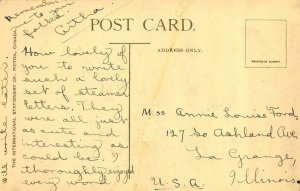 Remember
me to you
folks.
Arthur
POST CARD.
ADDRESS ONLY.
PRINTED IN GERMANY
How lovely of
you to write
such a lovely
set of steamer
letters. They
were all just
as cute and
interesting as
could be. I
thoroughly enjoyed
every word
will write later.
THE INTERNATIONAL STATIONERY CO., PICTON, CANADA.
Miss Annie Louise Ford,
127 So Ashland Ave
La Grange,
Illinois
U. S. A.